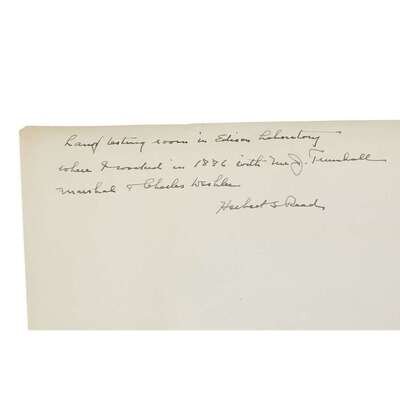 Lamp testing room in Edison Laboratory
where I worked in 1886 with Mr J. Trumball
Marshal & Charles
Herbert S Reed